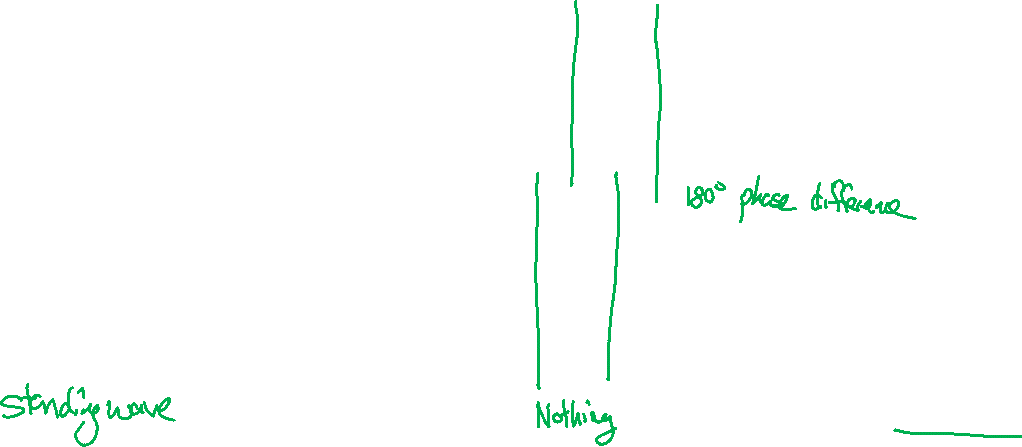 180° phase difference
standing wave
Nothing